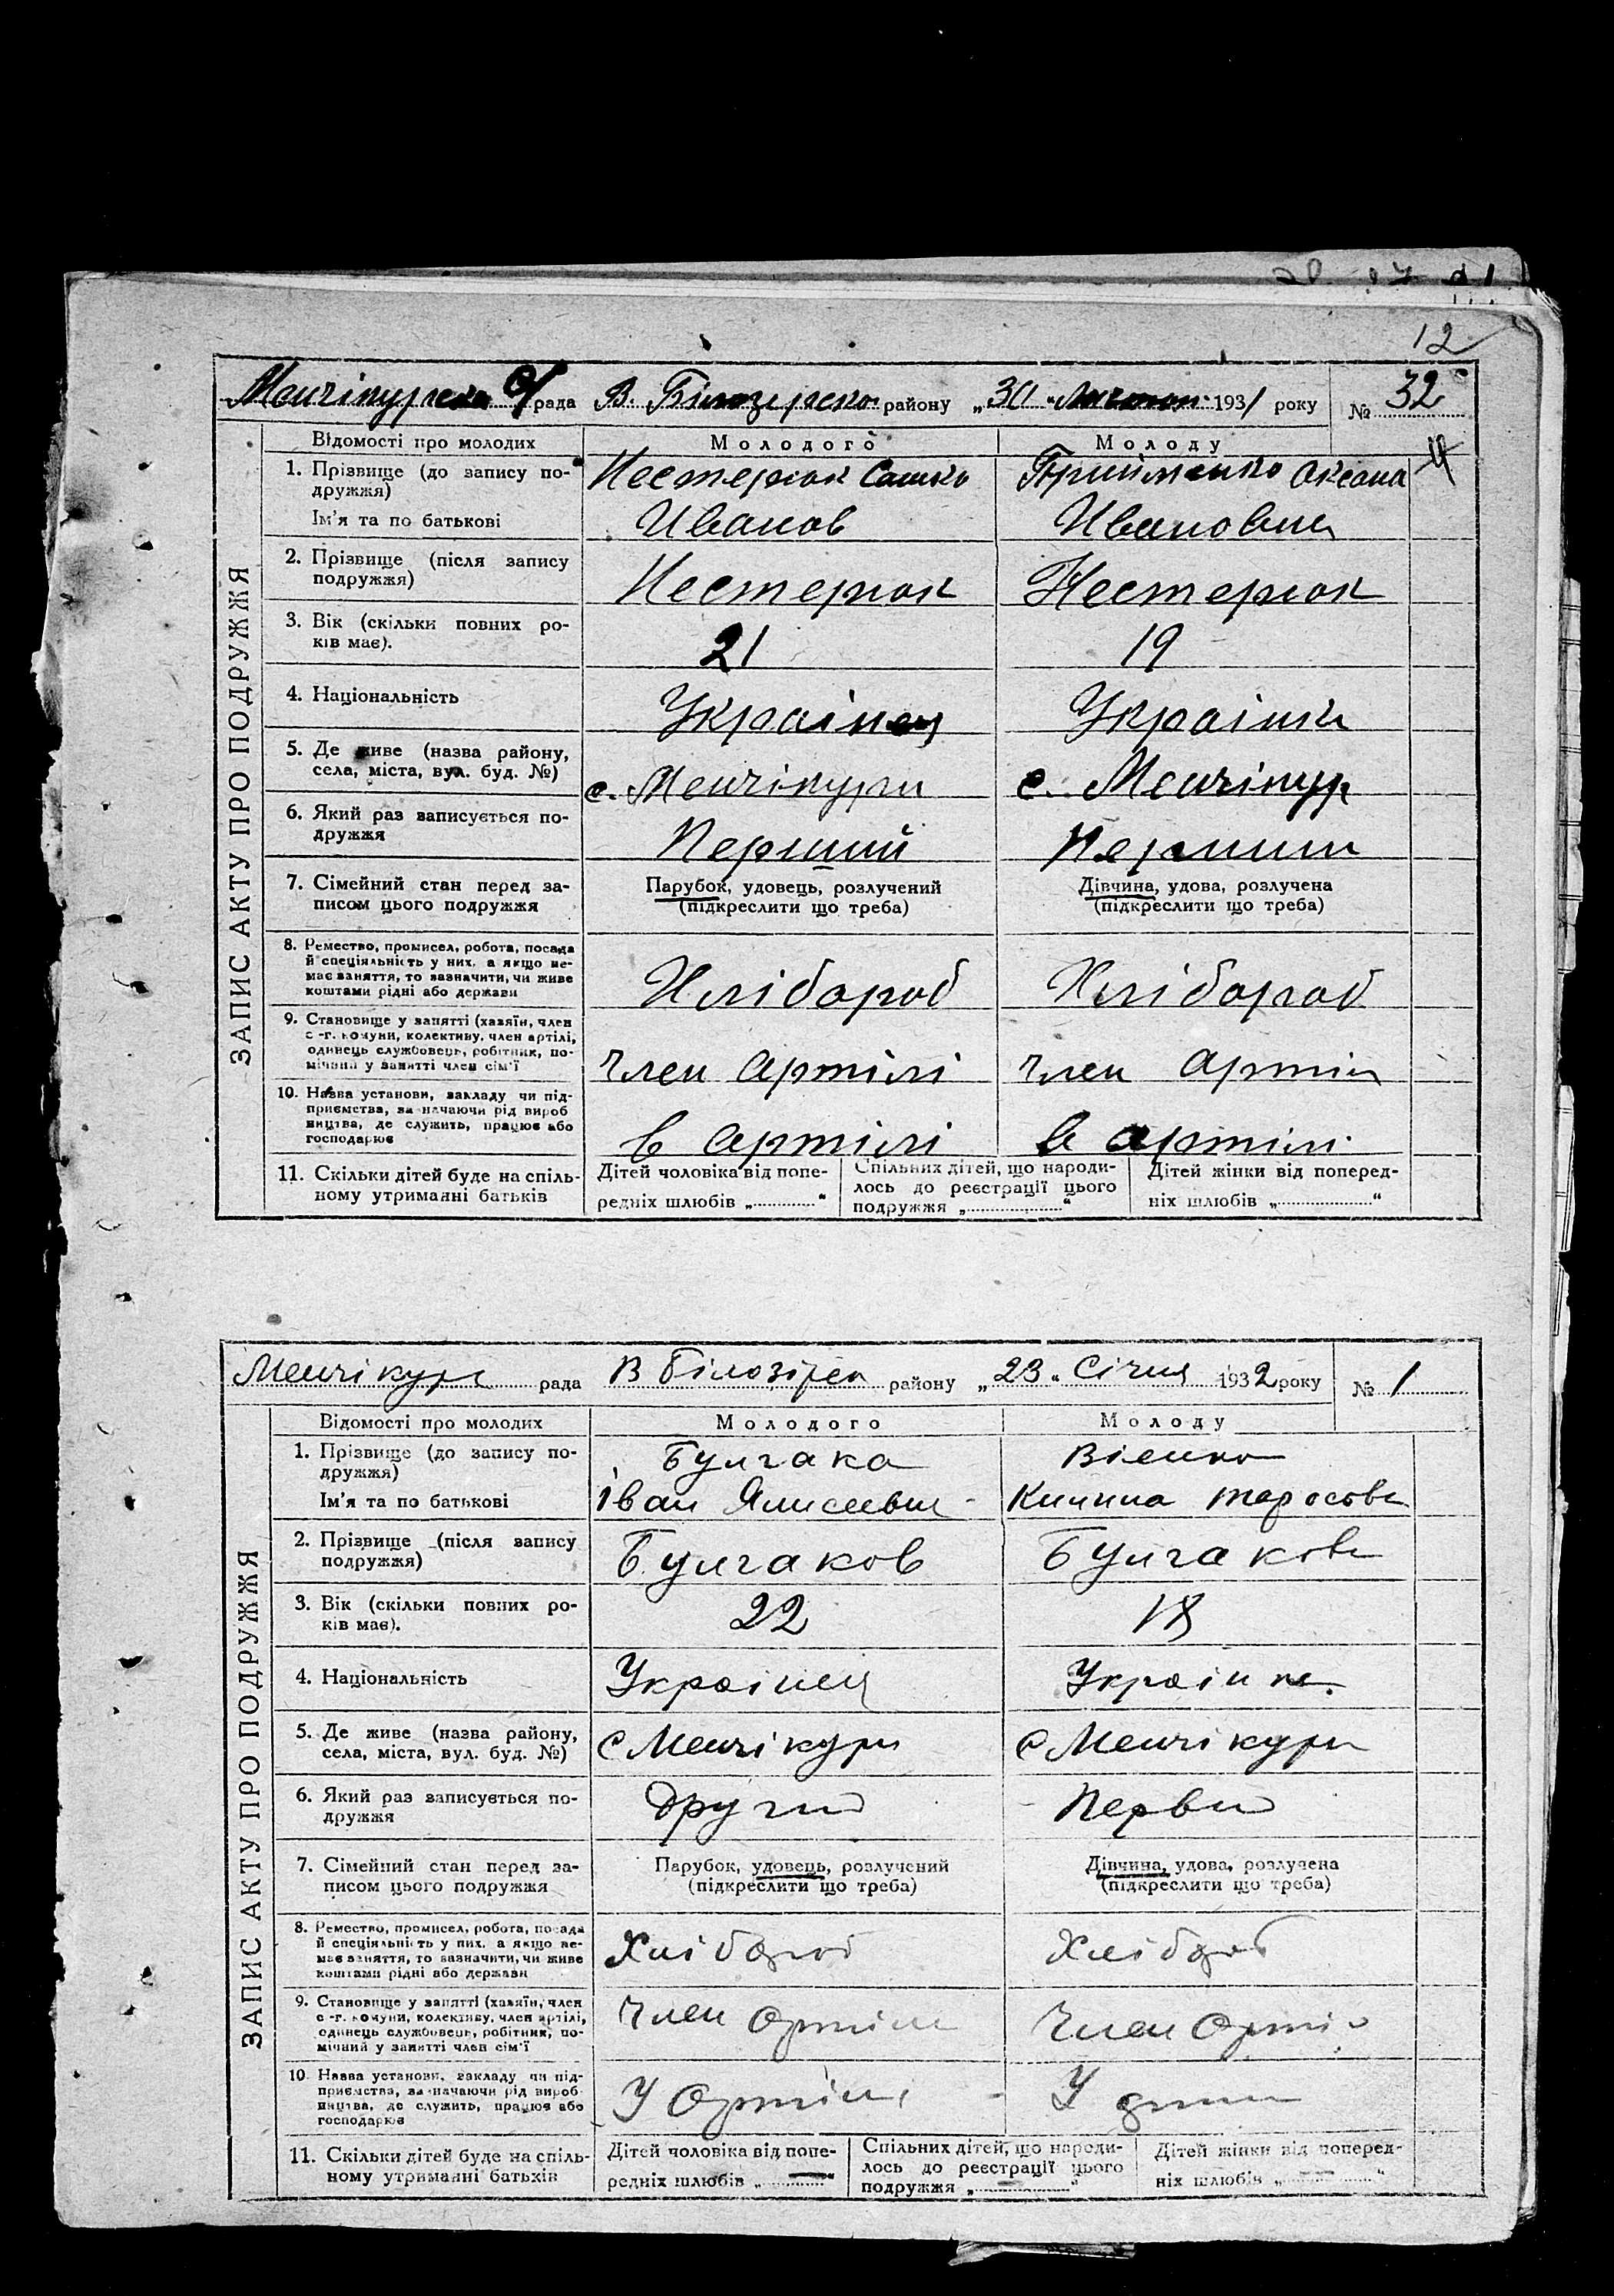 12
Менчікурска С/рада В. Білозерсько району „30“ 1931 року № 32
Відомості про молодих Молодого Молоду
1. Прізвище (до запису по-
дружжя) Нестерюк Сашко Оксана
Ім'я та по батькові Иванов Ивановна
2. Прізвище (після запису
подружжя) Нестерюк Нестерюк
3. Вік (скільки повних ро-
ків має). 21 19
4. Національність Украінец Украінка
5. Де живе (назва району,
села, міста, вул. буд. №) с. Менчікури с. Менчікур
6. Який раз записується по-
дружжя Перший Перший
7. Сімейний стан перед за- Парубок, удовець, розлучений Дівчина, удова, розлучена
писом цього подружжя (підкреслити що треба) (підкреслити що треба)
8. Ремество, промисел, робота, посада
й спеціяльність у них, а якщо не-
має заняття, то зазначити, чи живе
коштами рідні або держави Хлібороб Хлібороб
9. Становище у занятті (хазяїн, член
с.-г. комуни, колективу, член артілі,
одинець службовець, робітник, по-
мічний у занятті член сім'ї член артілі член артілі
10. Назва установи, закладу чи під-
приємства, зазначаючи рід вироб
ництва, де служить, працює або
господарює в артілі в артілі
11. Скільки дітей буде на спіль- Дітей чоловіка від попе- Спільних дітей, що народи- Дітей жінки від поперед-
ному утриманні батьків редніх шлюбів „ “ лось до реєстрації цього ніх шлюбів „ “
подружжя „ “
ЗАПИС АКТУ ПРО ПОДРУЖЖЯ
Менчікури рада В Білозірск району „23“ Січня 1932 року № 1
Відомості про молодих Молодого Молоду
1. Прізвище (до запису по- Булгака
дружжя)
Ім'я та по батькові Іван тарасова
2. Прізвище (після запису
подружжя) Булгаков Булгакова
3. Вік (скільки повних ро-
ків має). 22 18
4. Національність Украінец Украінка.
5. Де живе (назва району,
села, міста, вул. буд. №) с Менчікури с Менчікури
6. Який раз записується по-
дружжя другий Первий
7. Сімейний стан перед за- Парубок, удовець, розлучений Дівчина, удова, розлучена
писом цього подружжя (підкреслити що треба) (підкреслити що треба)
8. Ремество, промисел, робота, посада
й спеціяльність у них, а якщо не-
має заняття, то зазначити, чи живе
коштами рідні або держави Хлібороб Хлібороб
9. Становище у занятті (хазяїн, член
с.-г. комуни, колективу, член артілі,
одинець службовець, робітник, по-
мічний у занятті член сім'ї Член артіли Член артіл
10. Назва установи, закладу чи під-
приємства, зазначаючи рід вироб
ництва, де служить, працює або
господарює У артілі У
11. Скільки дітей буде на спіль- Дітей чоловіка від попе- Спільних дітей, що народи- Дітей жінки від поперед-
ному утриманні батьків редніх шлюбів „—“ лось до реєстрації цього ніх шлюбів „—“
подружжя „—“
ЗАПИС АКТУ ПРО ПОДРУЖЖЯ